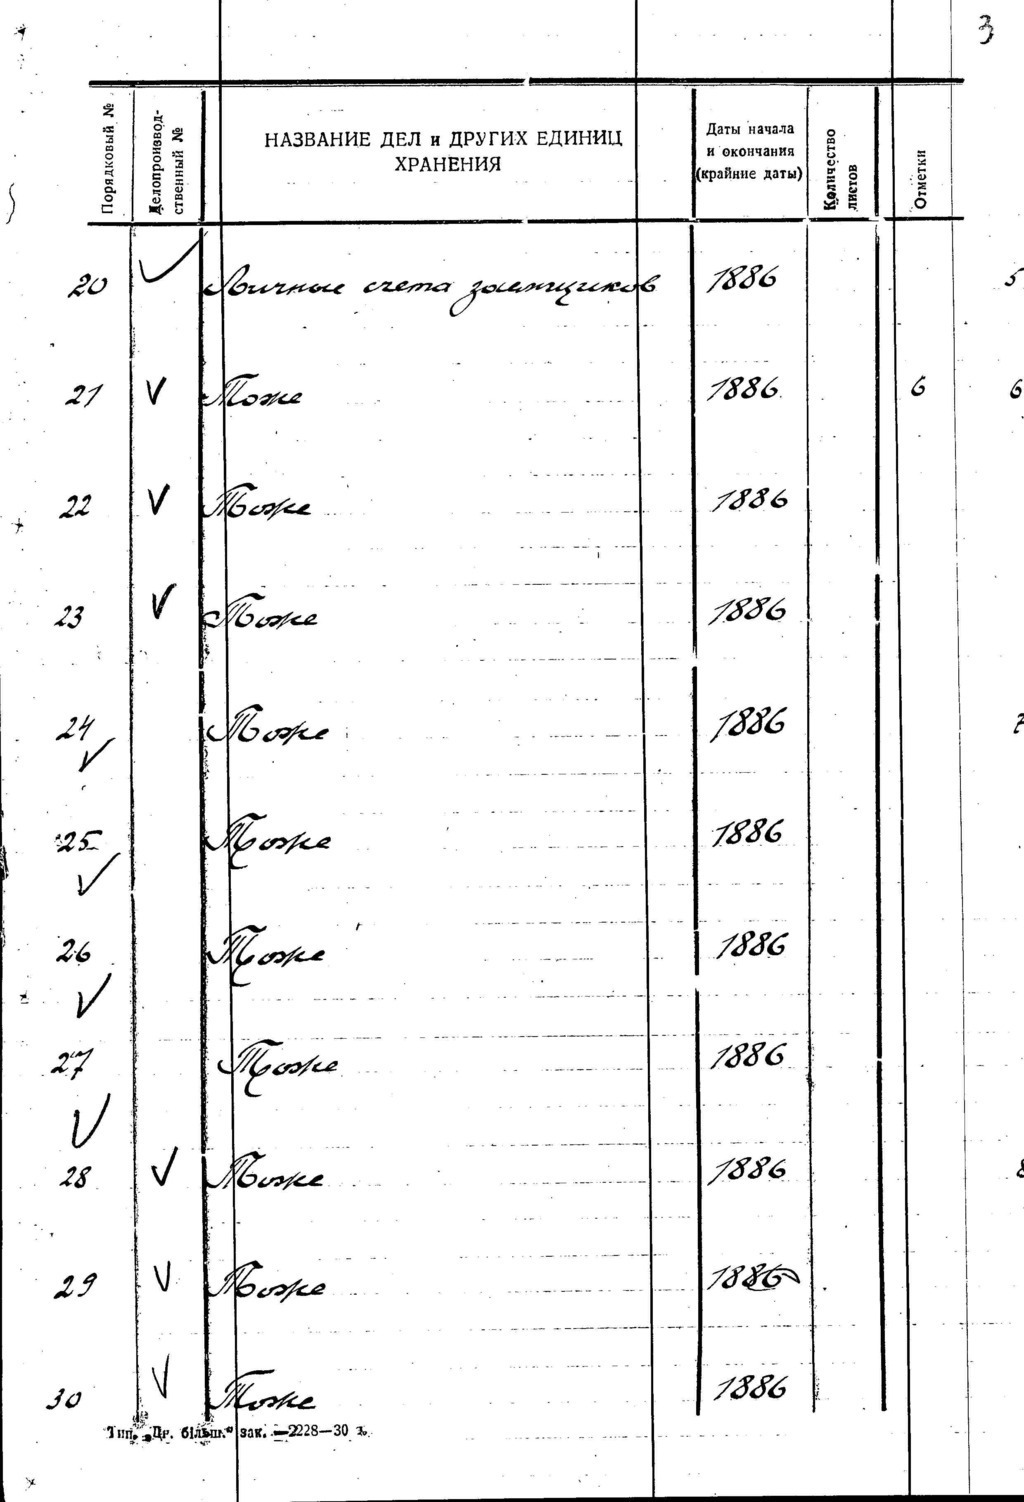 3
Порядковый №
Делопроизвод-
ственный №
НАЗВАНИЕ ДЕЛ и ДРУГИХ ЕДИНИЦ
ХРАНЕНИЯ
Даты начала
и окончания
(крайние даты)
Количество
листов
Отметки
20 Личные счета заемщиков 1886 5
21 Тоже 1886 6 6
22 Тоже 1886
23 Тоже 1886
24 Тоже 1886
25 Тоже 1886
26 Тоже 1886
27 Тоже 1886
28 Тоже 1886
29 Тоже 1886
30 Тоже 1886
Тип. „Др. більш." зак. —2228—30 т.